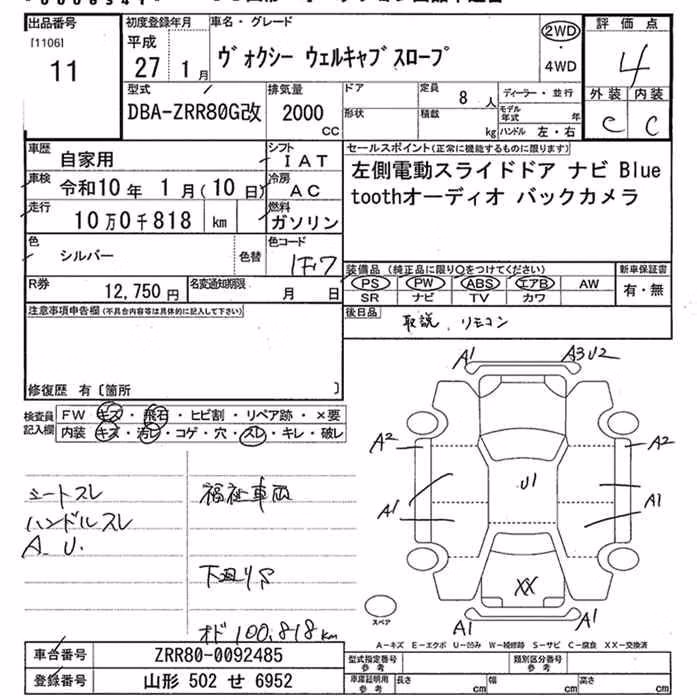 出品番号
[1106]
11
初度登録年月
平成
27 1月
車名・グレード
ヴォクシー ウェルキャブスロープ
2WD
・
4WD
評価点
4
外装 内装
C C
型式
DBA-ZRR80G改
排気量
2000
cc
ドア
形状
定員
8 人
積載
kg
ディーラー・並行
モデル年式 年
ハンドル 左・右
車歴
自家用
シフト
IAT
車検 令和10年 1月(10日)
冷房
AC
走行 10万0千818 km
燃料
ガソリン
セールスポイント(正常に機能するものに限ります)
左側電動スライドドア ナビ Blue
toothオーディオ バックカメラ
色
シルバー
色替
色コード
1F7
R券
12,750 円
名変通知期限
月 日
装備品(純正品に限り○をつけてください)
PS PW ABS エアB AW
SR ナビ TV カワ
新車保証書
有・無
後日品
取説、リモコン
注意事項申告欄(不具合内容等は具体的に記入して下さい)
修復歴 有〔箇所 〕
検査員
記入欄
FW キズ・飛石・ヒビ割・リペア跡・×要
内装 キズ・汚レ・コゲ・穴・スレ・キレ・破レ
シートスレ
ハンドルスレ
A. U.
福祉車両
下廻リサ
オド 100,818km
A1
A3U2
A2
A2
U1
A1
A1
XX
A1
A1
スペア
A-キズ E-エクボ U-凹み W-補修跡 S-サビ C-腐食 XX-交換済
車台番号 ZRR80-0092485
登録番号 山形 502 せ 6952
型式指定番号
参考
類別区分番号
参考
車庫証明用
参考
長さ cm
幅 cm
高さ cm